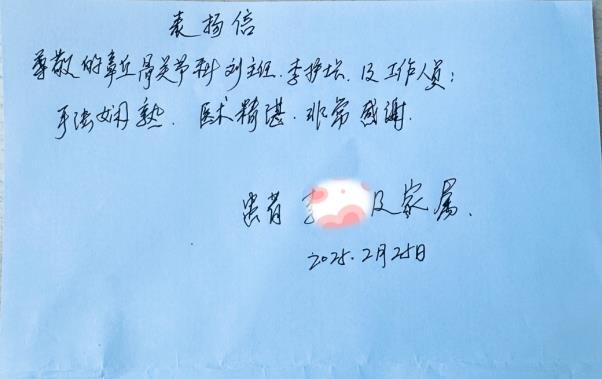 表扬信
尊敬的章丘骨关节科刘主任、李护士长、及工作人员:
手法娴熟、医术精湛、非常感谢、
患者 李 及家属、
2025.2月25日